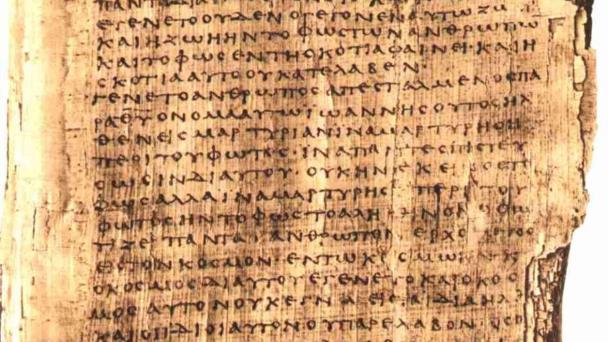 ΕΓΕΝΕΤΟΟΥΔΕΝΟΓΕΓΟΝΕΝΕΝΑΥΤΩΖΩ
ΚΑΙΗΖΩΗΗΝΤΟΦΩϹΤΩΝΑΝΘΡΩΠΩΝ
ΚΑΙΤΟΦΩϹΕΝΤΗϹΚΟΤΙΑΦΑΙΝΕΙ·ΚΑΙΗ
ϹΚΟΤΙΑΑΥΤΟΟΥΚΑΤΕΛΑΒΕΝ
ΓΕΝΕΤΟΑΝΘΡΩΠΟϹΑΠΕϹΤΑΛΜΕΝΟϹΠΑ
ΡΑΘΥΟΝΟΜΑΑΥΤΩΙΩΑΝΝΗϹΟΥΤΟϹΗΛ
ΘΕΝΕΙϹΜΑΡΤΥΡΙΑΝΙΝΑΜΑΡΤΥΡΗϹΗ
ΠΕΡΙΤΟΥΦΩΤΟϹ·ΙΝΑΠΑΝΤΕϹΠΙϹΤΕΥ
ϹΩϹΙΝΔΙΑΥΤΟΥ·ΟΥΚΗΝΕΚΕΙΝΟϹΤΟ
ΦΩϹΑΛΛΑΙΝΑΜΑΡΤΥΡΗϹΗΠΕΡΙΤΟΥ
ΦΩΤΟϹΗΝΤΟΦΩϹΤΟΑΛΗΘΙΝΟΝΟΦΩ
ΤΙΖΕΙΠΑΝΤΑΑΝΘΡΩΠΟΝΕΡΧΟ
ΕΙϹΤΟΝΚΟϹΜΟΝ·ΕΝΤΩΚΟϹΜΩΗΝΚ
ΟΚΟϹΜΟϹΔΙΑΥΤΟΥΕΓΕΝΕΤΟΚΑΙΟΚΟϹ
ΜΟϹΑΥΤΟΝΟΥΚΕΓΝΩΕΙϹΤΑΙΔΙΑΗΛΘ
ΚΑΙΟΙΙΔΙΟΙΑΥΤΟΝΟΥΠΑΡΕΛΑΒΟΝ·